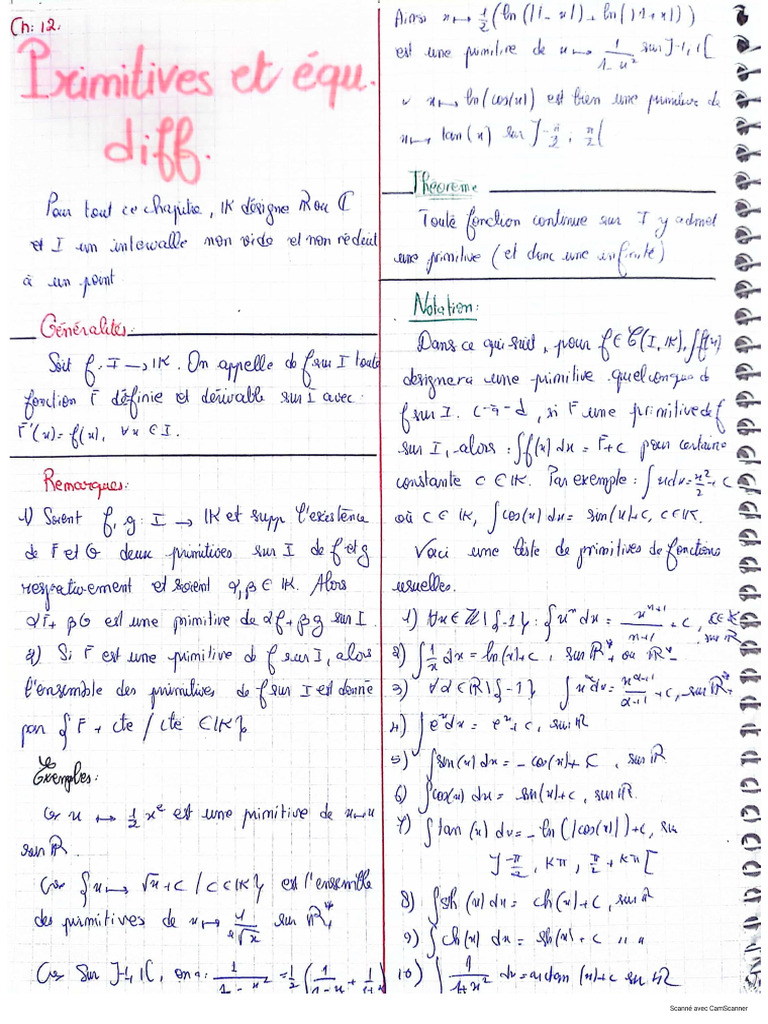 Ch: 12.
Primitives et équ.
diff.
Pour tout ce chapitre, IK désigne IR ou ℂ
et I un intervalle non vide et non réduit
à un point
Généralités:
Soit f: I → IK. On appelle de f sur I toute
fonction F définie et dérivable sur I avec:
F'(x) = f(x), ∀x ∈ I.
Remarques:
1) Soient f, g: I → IK et supp l'existence
de F et G deux primitives sur I de f et g
respectivement et soient α, β ∈ IK. Alors
αF + βG est une primitive de αf + βg sur I.
2) Si F est une primitive de f sur I, alors
l'ensemble des primitives de f sur I est donné
par {F + cte / cte ∈ IK}.
Exemples:
x ↦ 1/2 x² est une primitive de x ↦ x
sur IR.
{x ↦ √x + c / c ∈ IK} est l'ensemble
des primitives de x ↦ 1/(2√x) sur IR*+
Sur ]-1, 1[, on a: 1/(1 - x²) = 1/2 (1/(1-x) + 1/(1+x)
Ainsi x ↦ 1/2 (ln(|1 - x|) + ln(|1 + x|))
est une primitive de x ↦ 1/(1 - x²) sur ]-1, 1[
x ↦ ln(cos(x)) est bien une primitive de
x ↦ tan(x) sur ]-π/2 ; π/2[
Théorème
Toute fonction continue sur I y admet
une primitive (et donc une infinité)
Notation:
Dans ce qui suit, pour f ∈ C(I, IK), ∫f(x)
designera une primitive quelconque d
f sur I. c-à-d, si F une primitive de f
sur I, alors: ∫f(x) dx = F + c pour certaine
constante c ∈ IK. Par exemple: ∫x dx = x²/2 + c
où c ∈ IK, ∫cos(x) dx = sin(x) + c, c ∈ IK.
Voici une liste de primitives de fonctions
usuelles.
1) ∀n ∈ Z \ {-1}: ∫xⁿ dx = xⁿ⁺¹/(n+1) + c, c ∈ IK sur IR*
2) ∫1/x dx = ln(x) + c, sur IR*+ ou IR*-
3) ∀α ∈ IR \ {-1} ∫x^α dx = x^(α+1)/(α+1) + c, sur IR*+
4) ∫eˣ dx = eˣ + c, sur IR
5) ∫sin(x) dx = -cos(x) + c, sur IR
6) ∫cos(x) dx = sin(x) + c, sur IR.
7) ∫tan(x) dx = -ln(|cos(x)|) + c, sur
]-π/2, kπ, π/2 + kπ[
8) ∫sh(x) dx = ch(x) + c, sur IR
9) ∫ch(x) dx = sh(x) + c " "
10) ∫1/(1+x²) dx = arctan(x) + c sur IR
Scanné avec CamScanner